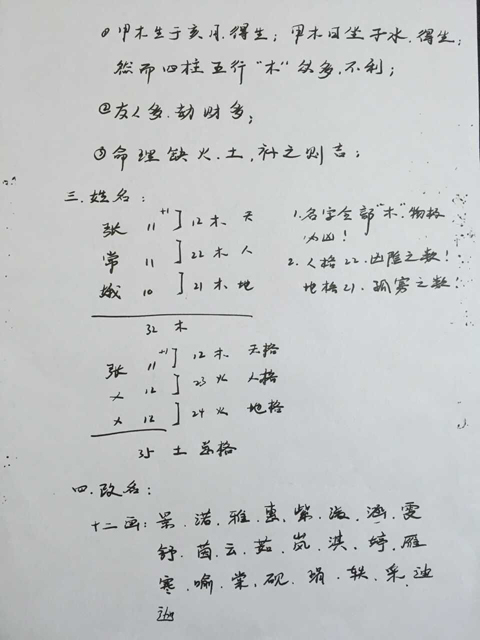 ①甲木生于亥月.得生；甲木日坐子水.得生；
然而四柱五行“木”众多.不利；
②友人多.劫财多；
③命理缺火.土.补之则吉；
三.姓名：
张 11 +1 ] 12 木 天 1.名字全部“木”.物极
常 11 ] 22 木 人 为凶！
娥 10 ] 21 木 地 2.人格22.凶险之数！
地格21.孤寡之数！
32 木
张 11 +1 ] 12 木 天格
× 12 ] 23 火 人格
× 12 ] 24 火 地格
35 土 总格
四.改名：
十二画：景.渃.雅.惠.紫.涵.雯
舒.茵.云.茹.岚.淇.婷.雁
寒.喻.棠.砚.琄.轶.采.迪